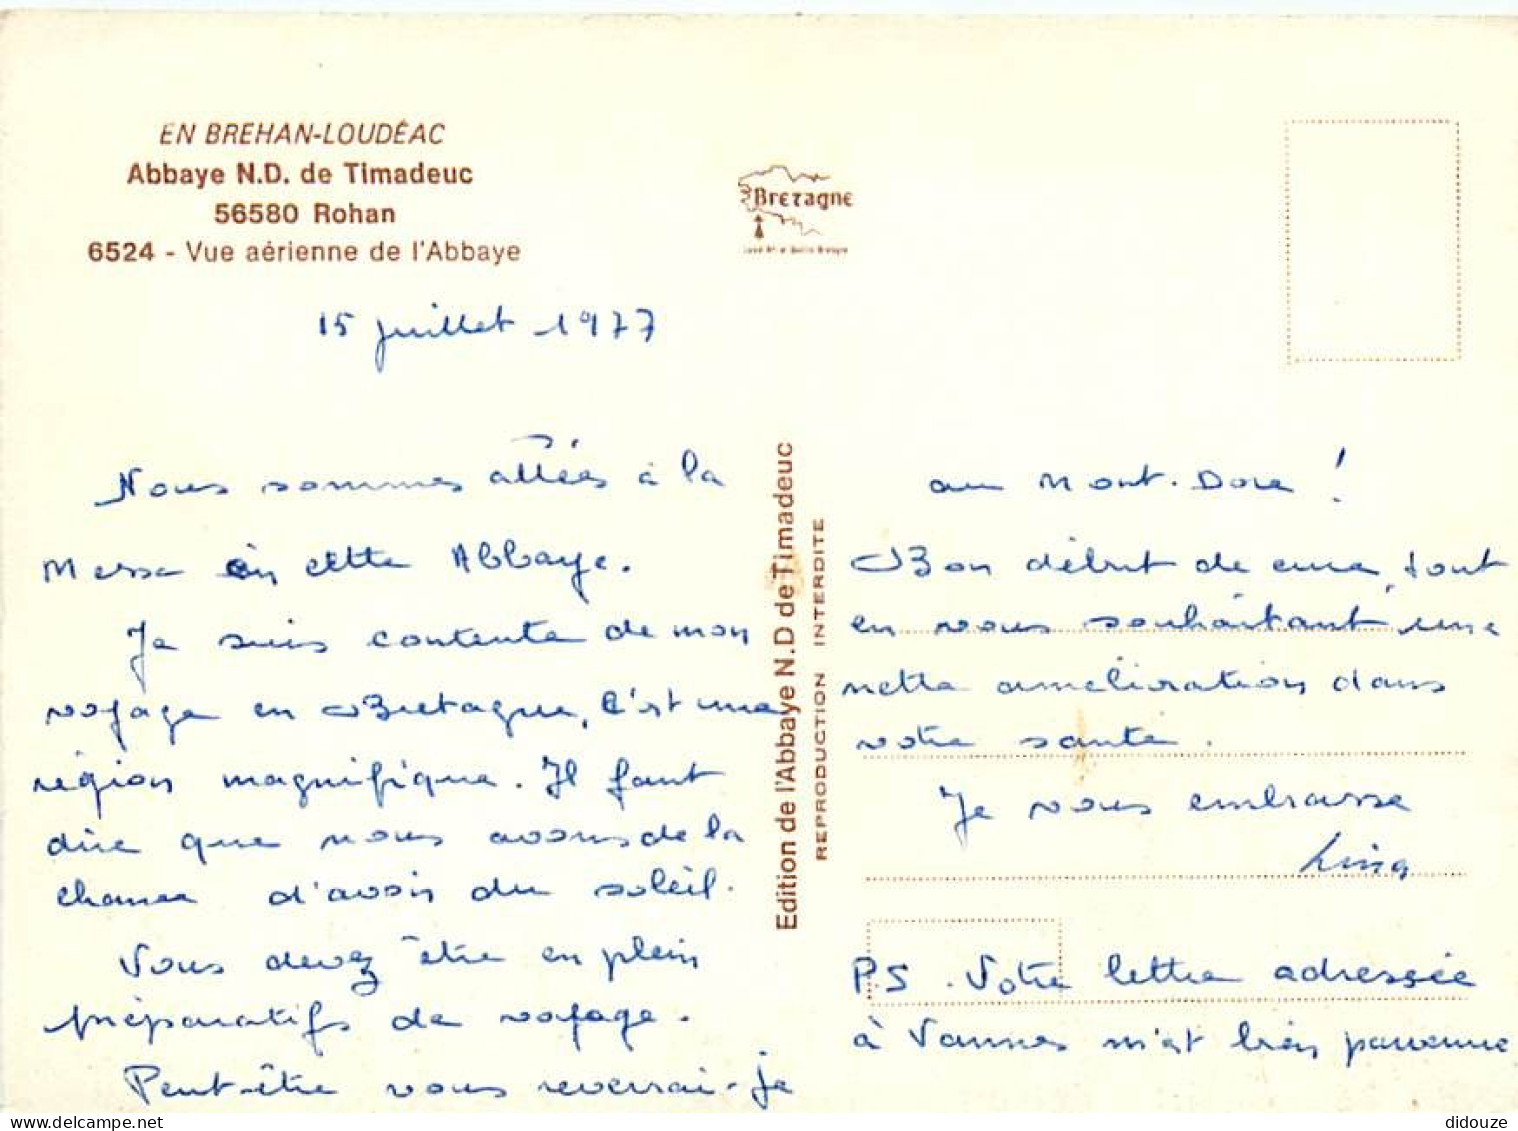 EN BREHAN-LOUDÉAC
Abbaye N.D. de Timadeuc
56580 Rohan
6524 - Vue aérienne de l'Abbaye
Bretagne
15 juillet 1977
Nous sommes allées à la
Messe en cette Abbaye.
Je suis contente de mon
voyage en Bretagne, c'est une
région magnifique. Il faut
dire que nous avons de la
chance d'avoir du soleil.
Vous devez être en plein
préparatifs de voyage.
Peut-être vous reverrai-je
Edition de l'Abbaye N.D de Timadeuc
REPRODUCTION INTERDITE
au Mont-Dore !
Bon début de cure, tout
en vous souhaitant une
nette amélioration dans
votre santé.
Je vous embrasse
P.S. Votre lettre adressée
à Vannes m'est bien parvenue
didouze